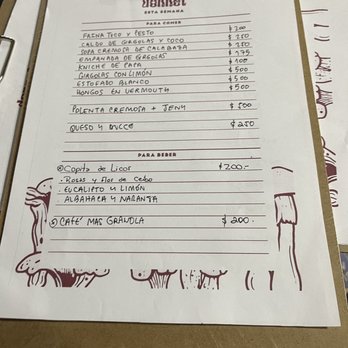 ESTA SEMANA
PARA COMER
FAINA TOCO Y PESTO $200
CALDO DE GIRGOLAS Y COCO $250
SOPA CREMOSA DE CALABAZA $250
EMPANADA DE GIRGOLAS $175
KNICHE DE PAPA $400
GIRGOLAS CON LIMÓN $500
ESTOFADO BLANCO $500
HONGOS EN VERMOUTH $500
POLENTA CREMOSA + $500
QUESO Y DULCE $250
PARA BEBER
Copita de Licor $200.-
• Rosas y Flor de Ceibo
• EUCALIPTO Y LIMÓN
• ALBAHACA Y NARANJA
CAFÉ MAS GRANOLA $200.-